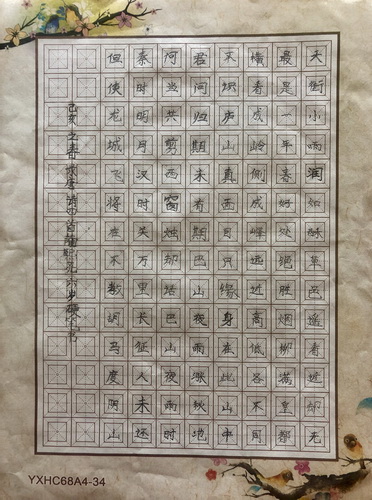 天街小雨润如酥草色遥看近却无
最是一年春好处绝胜烟柳满皇都
横看成岭侧成峰远近高低各不同
不识庐山真面目只缘身在此山中
君问归期未有期巴山夜雨涨秋池
何当共剪西窗烛却话巴山夜雨时
秦时明月汉时关万里长征人未还
但使龙城飞将在不教胡马度阴山
己亥之春录唐诗四首
YXHC68A4-34